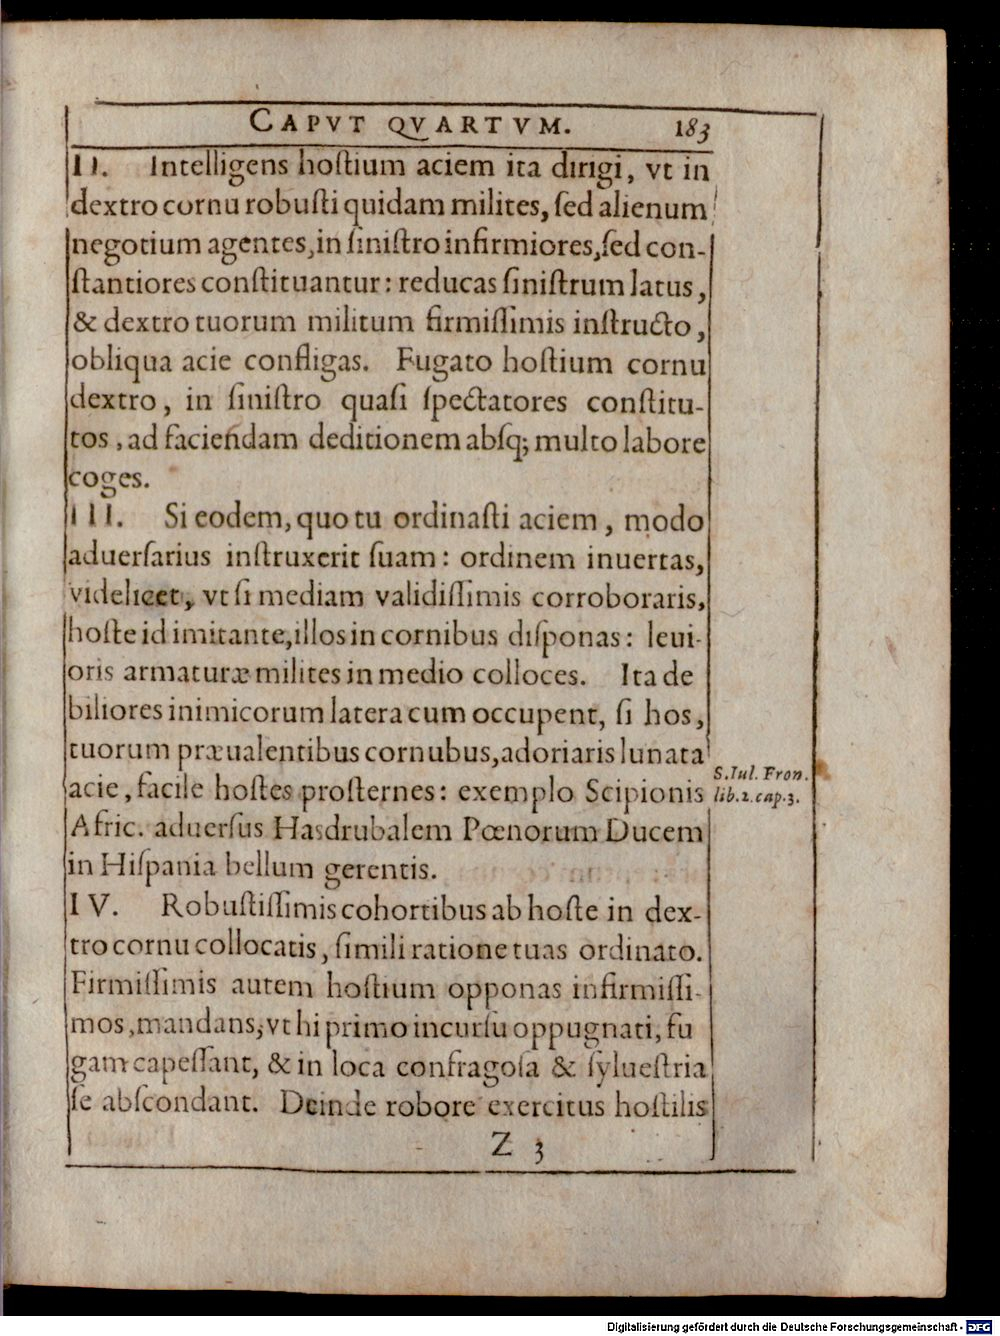 CAPVT QVARTVM. 183
II. Intelligens hoſtium aciem ita dirigi, vt in
dextro cornu robuſti quidam milites, ſed alienum
negotium agentes, in ſiniſtro infirmiores, ſed con-
ſtantiores conſtituantur: reducas ſiniſtrum latus,
& dextro tuorum militum firmiſſimis inſtructo,
obliqua acie confligas. Fugato hoſtium cornu
dextro, in ſiniſtro quaſi ſpectatores conſtitu-
tos, ad faciendam deditionem abſq; multo labore
coges.
III. Si eodem, quo tu ordinaſti aciem, modo
aduerſarius inſtruxerit ſuam: ordinem inuertas,
videlicet, vt ſi mediam validiſſimis corroboraris,
hoſte id imitante, illos in cornibus diſponas: leui-
oris armaturæ milites in medio colloces. Ita de
biliores inimicorum latera cum occupent, ſi hos,
tuorum præualentibus cornubus, adoriaris lunata
acie, facile hoſtes proſternes: exemplo Scipionis
S. Iul. Fron.
lib. 2. cap. 3.
Afric. aduerſus Hasdrubalem Pœnorum Ducem
in Hiſpania bellum gerentis.
IV. Robuſtiſſimis cohortibus ab hoſte in dex-
tro cornu collocatis, ſimili ratione tuas ordinato.
Firmiſſimis autem hoſtium opponas infirmiſſi-
mos, mandans, vt hi primo incurſu oppugnati, fu
gam capeſſant, & in loca confragoſa & ſylueſtria
ſe abſcondant. Deinde robore exercitus hoſtilis
Z 3
Digitalisierung gefördert durch die Deutsche Forschungsgemeinschaft - DFG